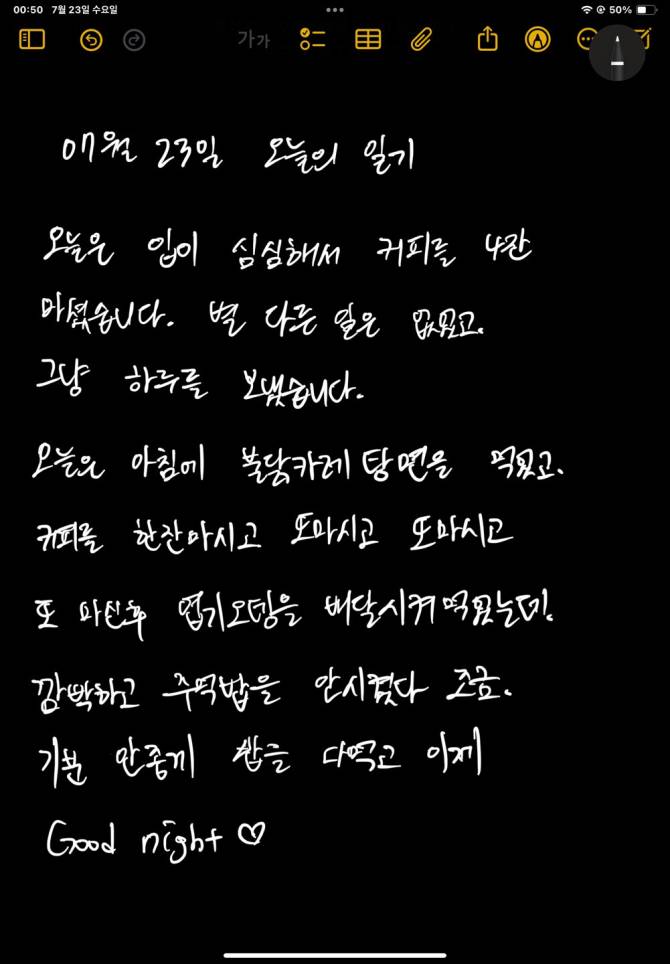 00:50 7월 23일 수요일
50%
가가
애월 23일 오늘의 일기
오늘은 입이 심심해서 커피를 4잔
마셨습니다. 별 다른 일은 없었고.
그냥 하루를 보냈습니다.
오늘은 아침에 불닭카레탕면을 먹었고.
커피를 한잔마시고 또마시고 또마시고
또 마신후 엽기오뎅을 배달시켜먹었는데.
깜빡하고 주먹밥을 안시켰다 조금.
기분 안좋게 밥을 다먹고 이제
Good night ♡